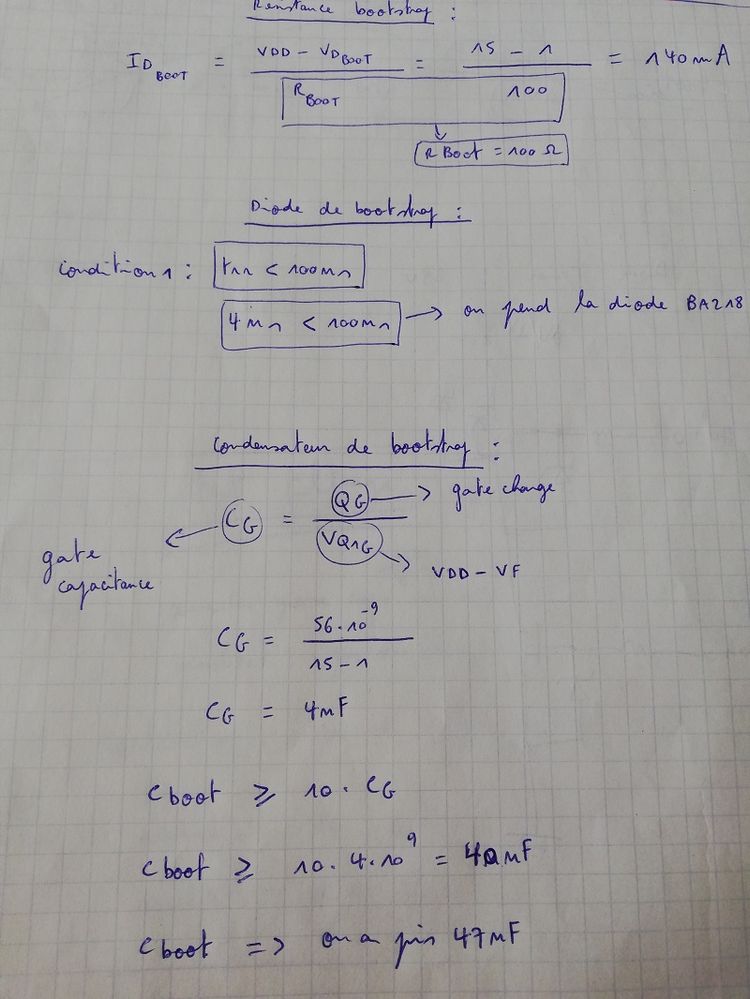 Resistance bootstrap :
ID_BOOT = (VDD - VD_BOOT) / R_BOOT = (15 - 1) / 100 = 140 mA
R Boot = 100 Ω
Diode de bootstrap :
Condition 1 : trr < 100 ns
4 ns < 100 ns → on prend la diode BA218
Condensateur de bootstrap :
CG = QG / VQ1G
QG → gate charge
gate capacitance ← CG
VQ1G → VDD - VF
CG = 56.10^-9 / 15 - 1
CG = 4nF
Cboot ≥ 10 . CG
Cboot ≥ 10 . 4 . 10^9 = 40 nF
Cboot => on a pris 47nF